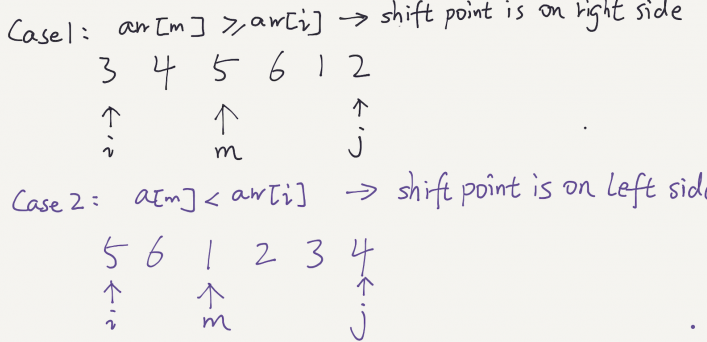 Case1: arr[m] ≥ arr[i] → shift point is on right side
3 4 5 6 1 2
↑ ↑ ↑
i m j
Case 2: a[m] < arr[i] → shift point is on left side
5 6 1 2 3 4
↑ ↑ ↑
i m j